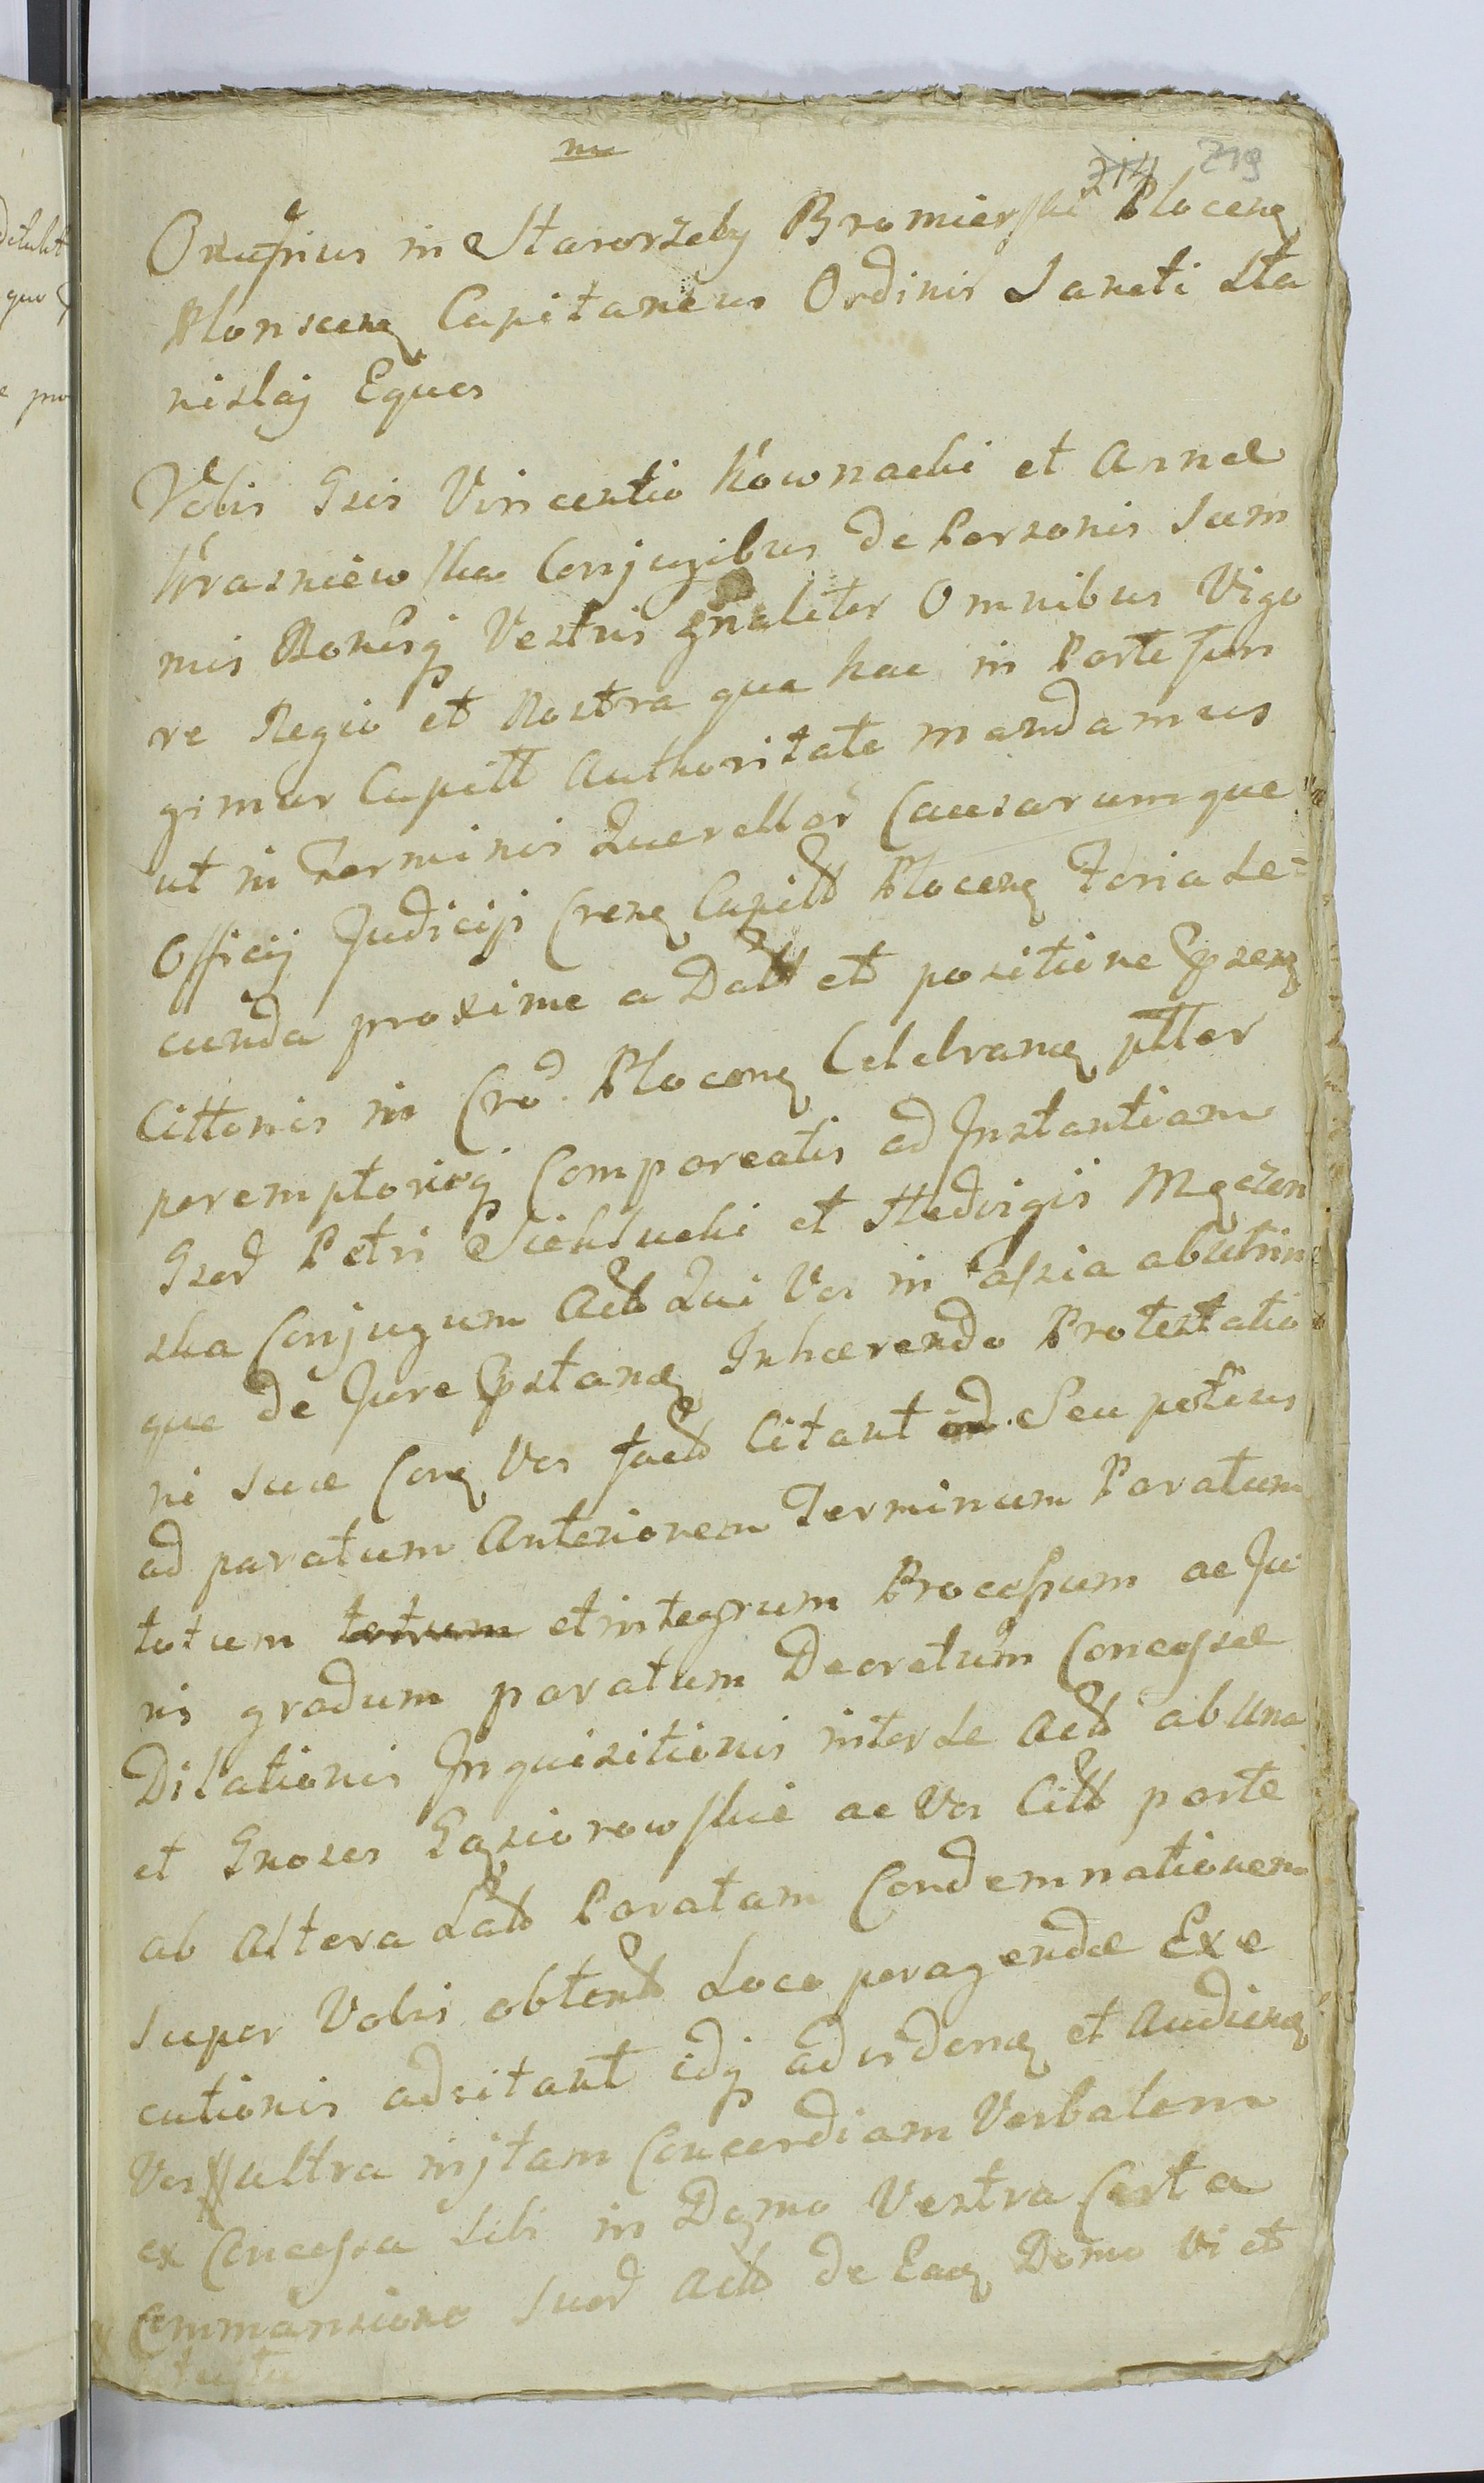 nu
214 219
Onufrius in Starorzeby Bromierski Plocenq
Plonscenq Capitaneus Ordinis Sancti Sta
nislaj Eques
Vobis Gsis Vincentio Kownacki et Annæ
Krasniewska Conjugibus de Personis Sum
mis Bonisq Vestris gnaliter Omnibus Vigo
re Regio et Nostra qua hac in Parte fun
gimur Capitt Authoritate mandamus
ut in Terminis Querellar Causarumque
Officij Judicijs Crenq Capitt Plocenq Feria Se=
cunda proxime a Datt et positione Psenq
Cittonis in Cro. Plocenq Celebranq ptter
peremptorieq Compareatis ad Instantiam
Gsor Petri Siekluchi et Hedvigis Mączen
ska Conjugum Actt Qui Vos in assia abutrin
que de Jure Pstanq Inhærendo Protestatio
ni suæ Conq Vos factt Citant Seu potius
ad paratum Anteriorem Terminum Paratum
totum totum et integrum Processum ac Ju
ris gradum paratum Decretum Concessæ
Dilationis Inquisitionis inter Se Actt ab Una
et Gnosos Gąsiorowskie ac Vos Citt parte
ab Altera Latt Paratam Condemnationem
super Vobis obtentt Loco peragendæ Exe
cutionis adcitant idq ad videnq et Audienq
Vos ultra injtam Concordiam Verbalem
ex Concessa sibi in Domo Vestra Certa
Commansione suor Actt de Eaq Domo Vi et